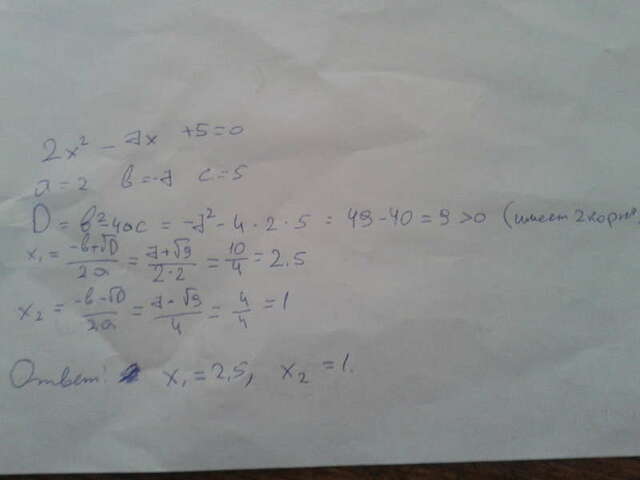 2x² - 7x + 5 = 0
a = 2 в = -7 c = 5
D = в² - 4ac = -7² - 4 · 2 · 5 = 49 - 40 = 9 > 0 (имеет 2 корня
x₁ = (-в+√D)/2a = (7+√9)/(2·2) = 10/4 = 2.5
x₂ = (-в-√D)/2a = (7-√9)/4 = 4/4 = 1
Ответ: x₁ = 2,5, x₂ = 1.